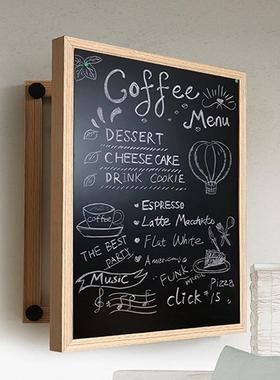 Coffee
Menu
DESSERT
CHEESE CAKE
DRINK COOKIE
ESPRESSO
Latte Macchiato
Flat White
Americano
Coffee
THE BEST
PARTY
FUNK
music
Pizza
Music
click *15